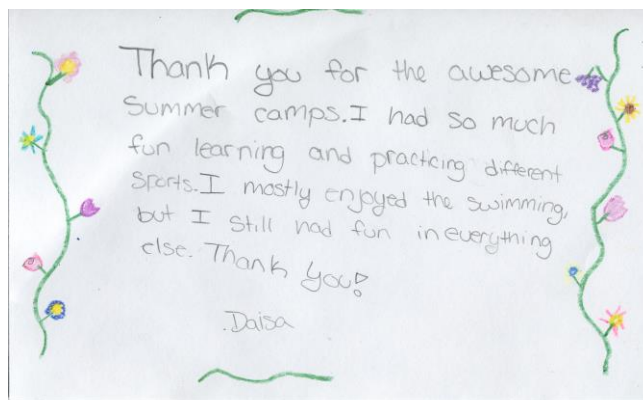 Thank you for the awesome
Summer camps. I had so much
fun learning and practicing different
sports. I mostly enjoyed the swimming,
but I still had fun in everything
else. Thank You!
.Daisa